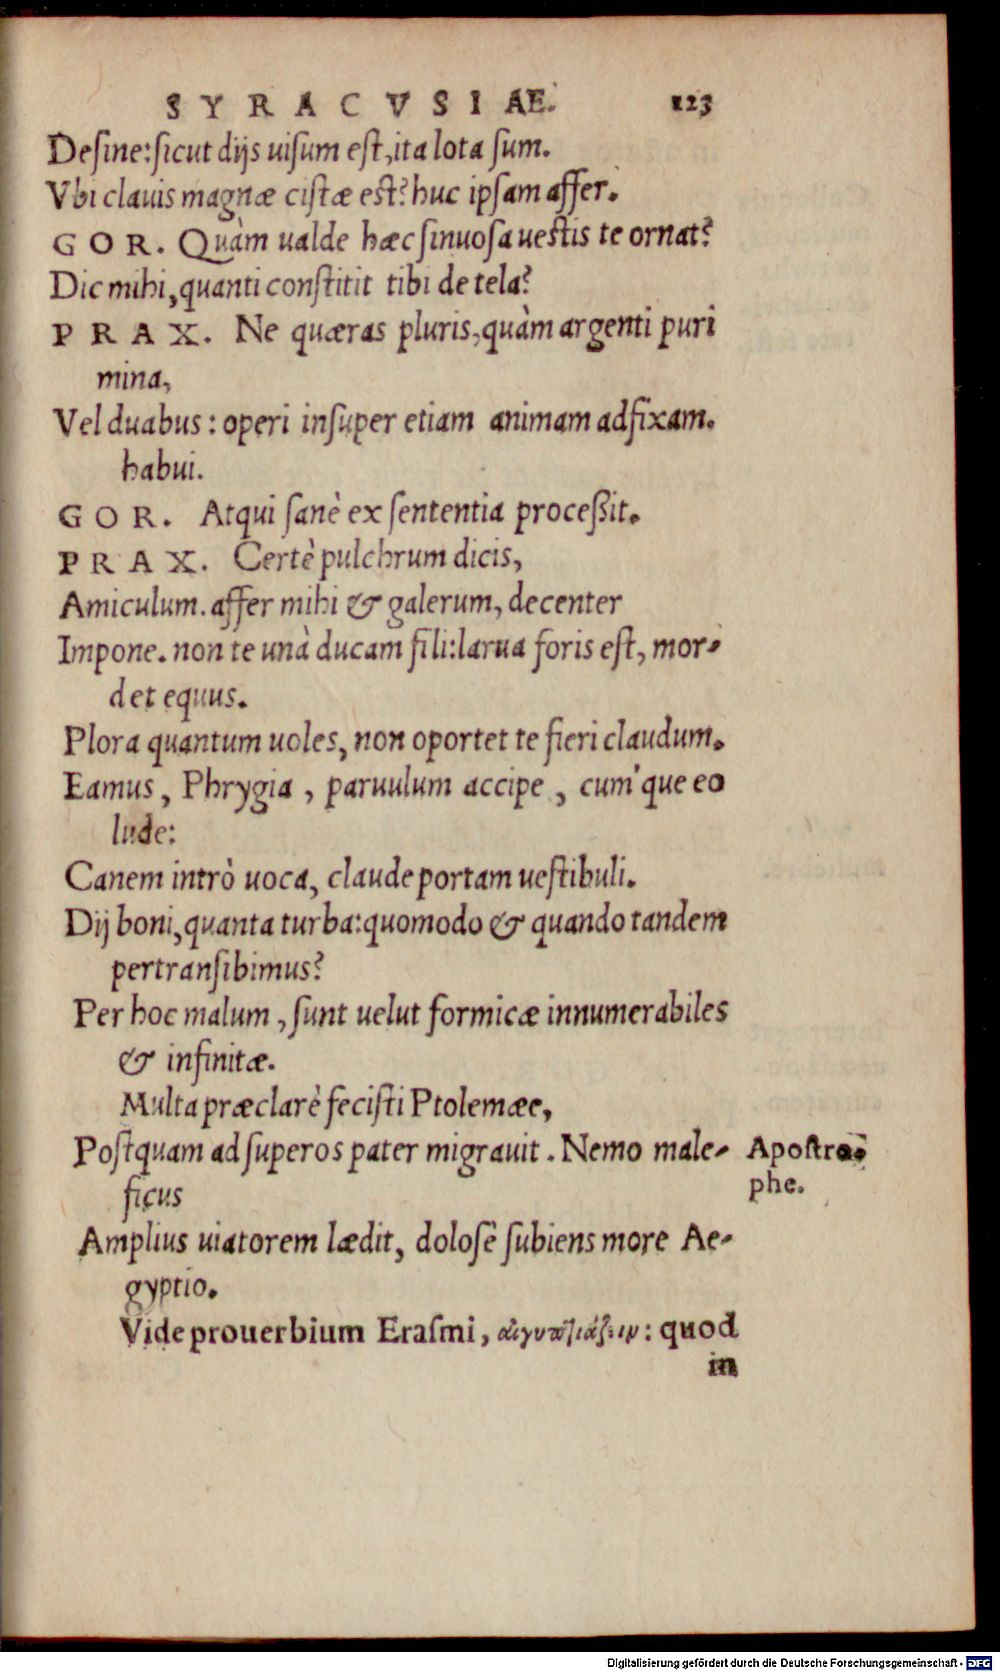 SYRACVSIAE. 123
Desine: sicut dijs uisum est, ita lota sum.
Vbi clauis magnæ cistæ est? huc ipsam affer.
GOR. Quàm ualde hæc sinuosa uestis te ornat?
Dic mihi, quanti constitit tibi de tela?
PRAX. Ne quæras pluris, quàm argenti puri
mina,
Vel duabus: operi insuper etiam animam adfixam.
habui.
GOR. Atqui sanè ex sententia proceßit.
PRAX. Certè pulchrum dicis,
Amiculum. affer mihi & galerum, decenter
Impone. non te unà ducam fili: larua foris est, mor-
det equus.
Plora quantum uoles, non oportet te fieri claudum.
Eamus, Phrygia, paruulum accipe, cum'que eo
lude:
Canem intrò uoca, claude portam uestibuli.
Dij boni, quanta turba: quomodo & quando tandem
pertransibimus?
Per hoc malum, sunt uelut formicæ innumerabiles
& infinitæ.
Multa præclarè fecisti Ptolemæe,
Postquam ad superos pater migrauit. Nemo male-
ficus
Apostro-
phe.
Amplius uiatorem lædit, dolosè subiens more Ae-
gyptio.
Vide prouerbium Erasmi, αἰγυπτιάζειν: quod
in
Digitalisierung gefördert durch die Deutsche Forschungsgemeinschaft - DFG